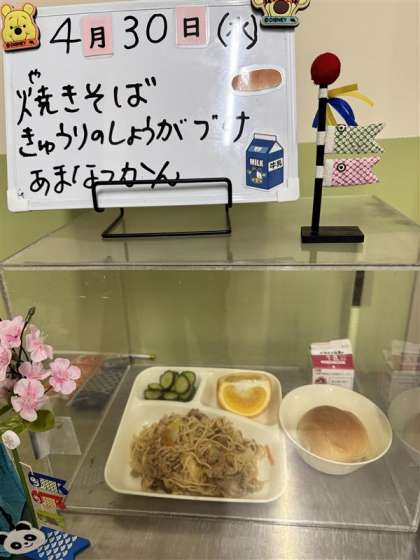 4月30日(水)
や
焼きそば
きゅうりのしょうがづけ
あまなつかん
MILK 牛乳
©DISNEY
©DISNEY